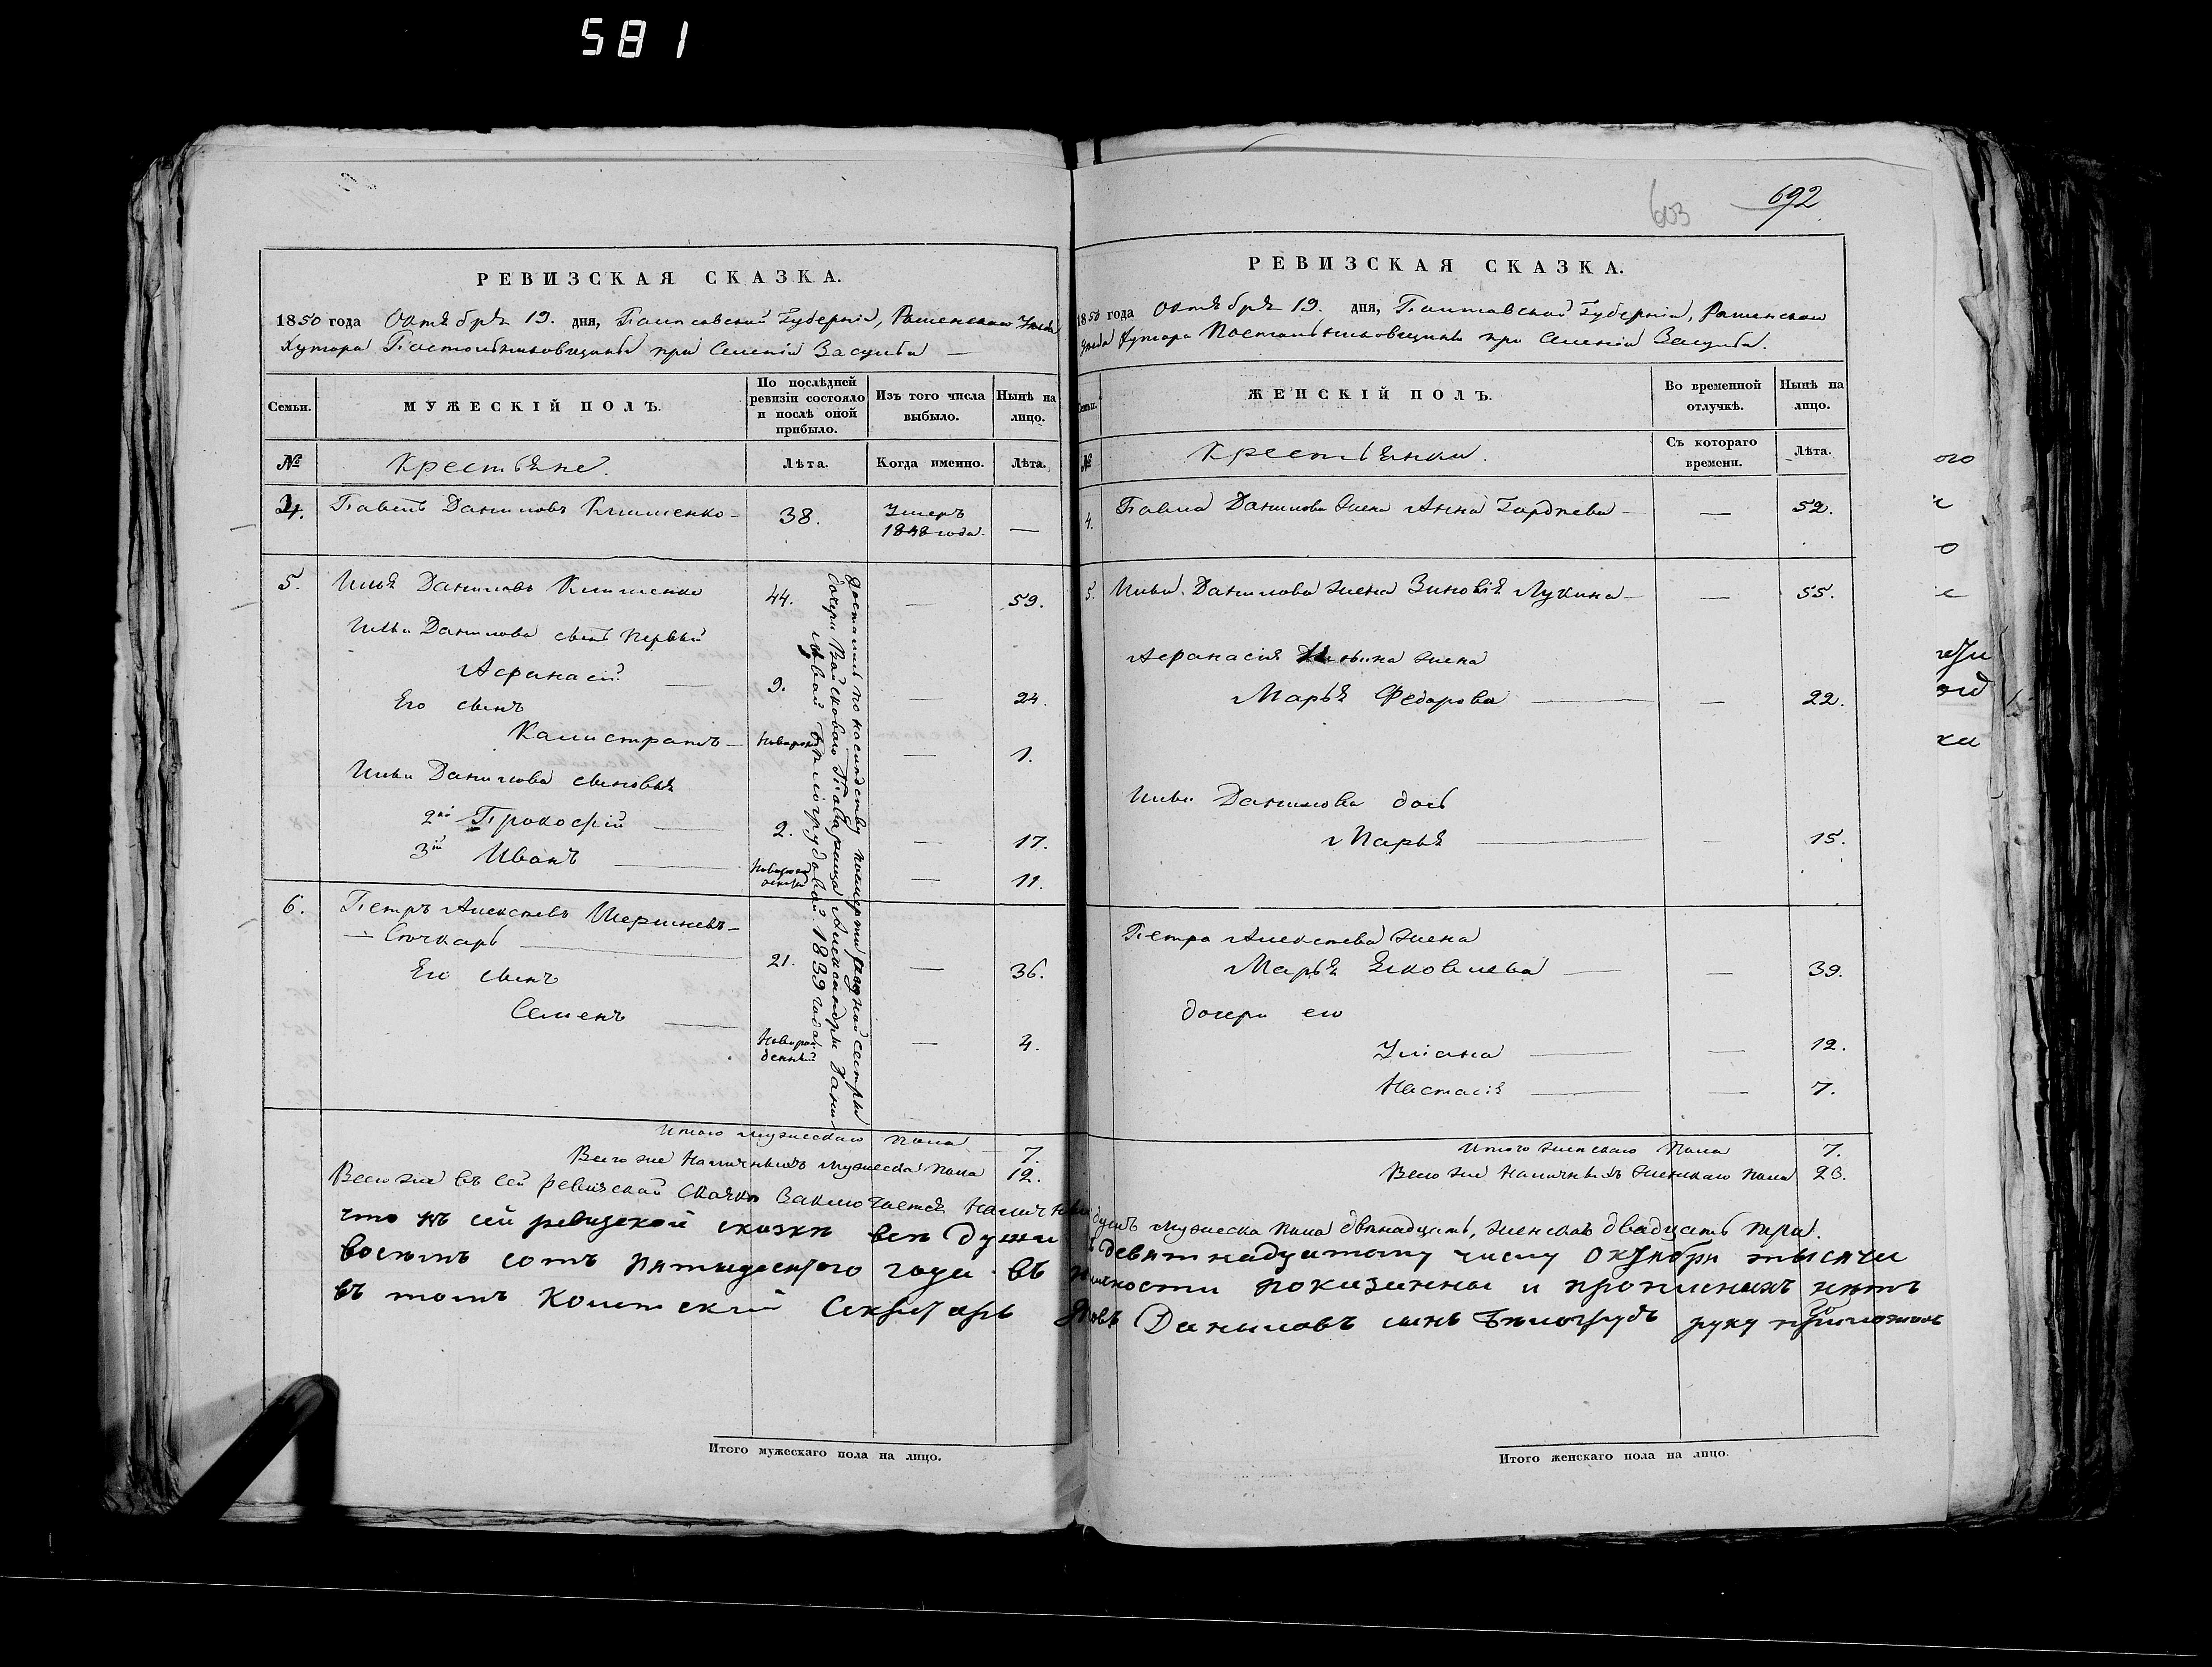 581
603
692
РЕВИЗСКАЯ СКАЗКА.
1850 года Октября 19. дня, Полтавской Губерніи, Роменского Уезда
Хутора Постольниковщины при Селеніи Засулья —
Семьи. МУЖЕСКІЙ ПОЛЪ. По послѣдней ревизіи состояло и послѣ оной прибыло. Изъ того числа выбыло. Нынѣ на лицо.
№ Крестьяне. Лѣта. Когда именно. Лѣта.
4. Павелъ Даниловъ Клименко — 38. Умеръ 1848 года. —
5. Илья Даниловъ Клименко 44. — 59.
Ильи Данилова сынъ первый
Афанасій — 9. — 24.
Его сынъ
Калистратъ — Новорож — 1.
Ильи Данилова сыновья
2й Прокофій — 2. — 17.
3й Иванъ — Новорожденный — 11.
6. Петръ Алексѣевъ
— 21. — 36.
Его сынъ
Семенъ — Новорожденный — 4.
Достались по наслѣдству после смерти родной сестры
дочери Войскового Товарища Александры Данил
овой Бѣлогрудовой. 1839 года.
Итого мужескаго пола 7.
Всего же наличныхъ мужеска пола 12.
Всего же въ сей ревизской сказкѣ заключается наличныхъ
что въ сей ревизской сказкѣ все души
восемь сотъ пятидесятого года въ
въ томъ Секретарь
РЕВИЗСКАЯ СКАЗКА.
1850 года Октября 19. дня, Полтавской Губерніи, Роменского
Уезда Хутора Постольниковщины при Селеніи Засулья.
Семьи. ЖЕНСКІЙ ПОЛЪ. Во временной отлучкѣ. Нынѣ на лицо.
№ Крестьянки. Съ котораго времени. Лѣта.
4. Павла Данилова жена Анна Гордѣева — — 52.
5. Ильи Данилова жена Зиновія Лукина — — 55.
Афанасія Ильина жена
Марья Федорова — — 22.
Ильи Данилова дочь
Марья — — 15.
Петра Алексѣева жена
Марья Яковлева — — 39.
дочери его
Уліана — — 12.
Настасія — — 7.
Итого женскаго пола 7.
Всего же наличныхъ женскаго пола 23.
душъ мужеска пола двѣнадцать, женска двадцать три.
девятнадцатому числу Октября тысячи
показанны и прописныхъ нетъ
Даниловъ сынъ Бѣлогрудъ руку приложилъ
Итого мужескаго пола на лицо.
Итого женскаго пола на лицо.